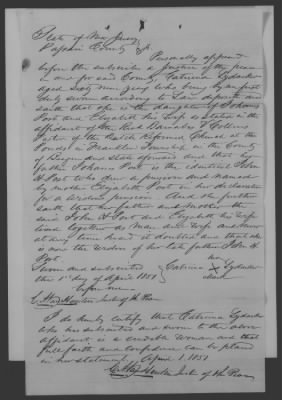 State of New Jersey
Passaic County ss
Personally appeared
before the subscriber a Justice of the peace
in and for said County, Catrina Lydecker
aged sixty nine years who being by me first
duly sworn according to Law deposeth and
saith that she is the daughter of Johannis
Post and Elizabeth his wife as stated in the
affidavit of the Rev
Pastor of the Dutch Reformed Church at the
Ponds in Franklin Township in the County
of Bergen and State aforesaid and that her
father Johannis Post is the identical John
H Post who drew a pension and named
by mother Elizabeth Post in her declaration
for a widows pension. And she further
saith that her father and Mother the
said John H Post and Elizabeth his wife
lived together as Man and wife and never
at any time heard it doubted and that she
is now the widow of her late father John H.
Post
Sworn and subscribed
the 1st day of April 1851
before me
Catrina X Lydecker
her
mark
Jus of the Peace
I do hereby certify that Catrina Lydecker
who has subscribed and sworn to the above
affidavit is a credible woman and that
full faith and confidence can be placed
in her statement, April 1, 1851
Jus of the Peace